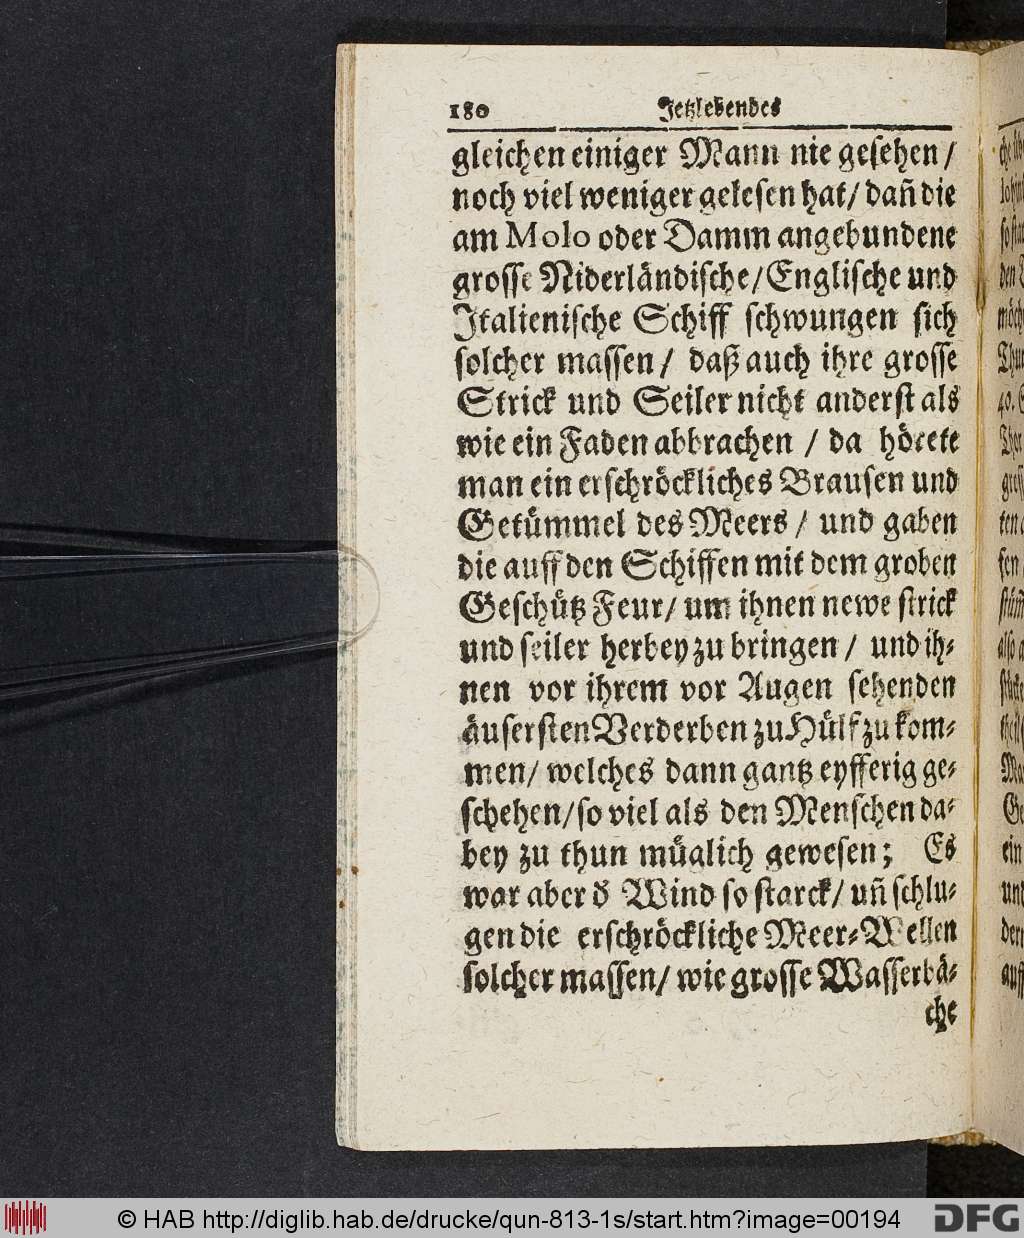 180 Jetzlebendes
gleichen einiger Mann nie gesehen /
noch viel weniger gelesen hat / dañ die
am Molo oder Damm angebundene
grosse Niderländische / Englische und
Italienische Schiff schwungen sich
solcher massen / daß auch ihre grosse
Strick und Seiler nicht anderst als
wie ein Faden abbrachen / da hörete
man ein erschröckliches Brausen und
Getümmel des Meers / und gaben
die auff den Schiffen mit dem groben
Geschütz Feur / um ihnen newe strick
und seiler herbey zu bringen / und ih-
nen vor ihrem vor Augen sehenden
äusersten Verderben zu Hülf zu kom-
men / welches dann gantz eyfferig ge-
schehen / so viel als den Menschen da-
bey zu thun müglich gewesen; Es
war aber d̕ Wind so starck / uñ schlu-
gen die erschröckliche Meer-Wellen
solcher massen / wie grosse Wasserbä-
che
© HAB http://diglib.hab.de/drucke/qun-813-1s/start.htm?image=00194
DFG